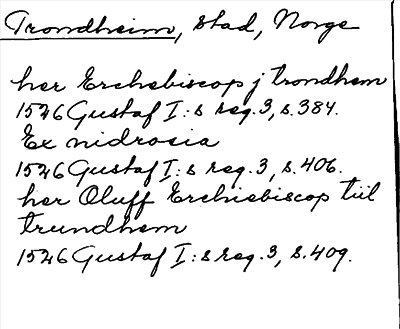 Trondheim, stad, Norge
her Erchebiscop j trondhem
1526 Gustaf I:s reg. 3, s. 384.
Ex nidrosia
1526 Gustaf I:s reg. 3, s. 406.
her Oluff Erchiebiscop tiil
trundhem
1526 Gustaf I:s reg. 3, s. 409.